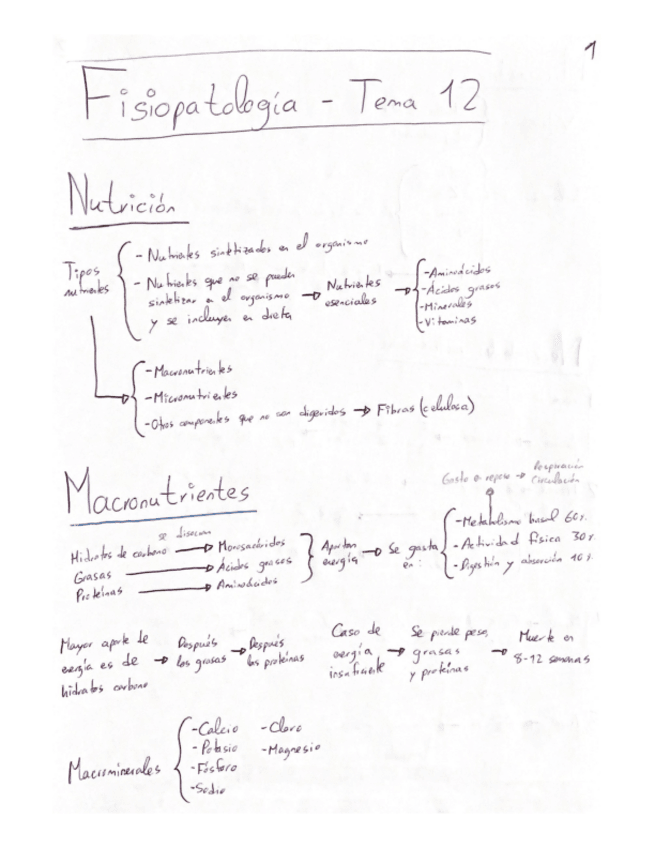 1
Fisiopatología - Tema 12
Nutrición
Tipos nutrientes
- Nutrientes sintetizados en el organismo
- Nutrientes que no se pueden
sintetizar en el organismo
y se incluyen en dieta
→ Nutrientes
esenciales
→
-Aminoácidos
-Ácidos grasos
-Minerales
-Vitaminas
-Macronutrientes
-Micronutrientes
-Otros componentes que no son digeridos → Fibras (celulosa)
Macronutrientes
Gasto en reposo → Respiración
Circulación
se disecan
Hidratos de carbono → Monosacáridos
Grasas → Ácidos grasos
Proteínas → Aminoácidos
Aportan
energía
→ Se gasta
en:
-Metabolismo basal 60%
-Actividad física 30%
-Digestión y absorción 10%
Mayor aporte de
energía es de
hidratos carbono
→ Después
las grasas
→ Después
las proteínas
Caso de
energía
insuficiente
→ Se pierde peso,
grasas
y proteínas
→ Muerte en
8-12 semanas
Macrominerales
-Calcio
-Potasio
-Fósforo
-Sodio
-Cloro
-Magnesio